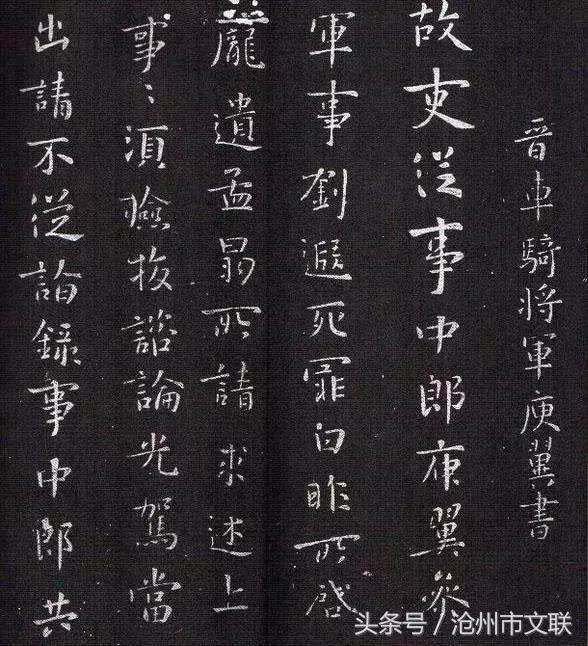 晉車騎將軍庾翼書
故吏從事中郎庾翼參
軍事劉遐死罪白昨所啓
龐遺孟昺所請求述上
事〻須檢校諮論光駕當
出請不從詣錄事中郎共
头条号 / 沧州市文联